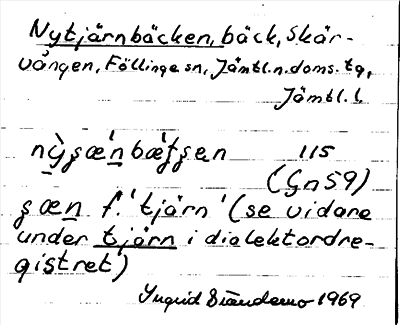 Nytjärnbäcken, bäck, Skär-
vången, Föllinge sn, Jämtl.n.doms. tg,
Jämtl. l.
115
(Gn59)
f. 'tjärn' (se vidare
under tjärn i dialektordre-
gistret)
Yngrid 1969